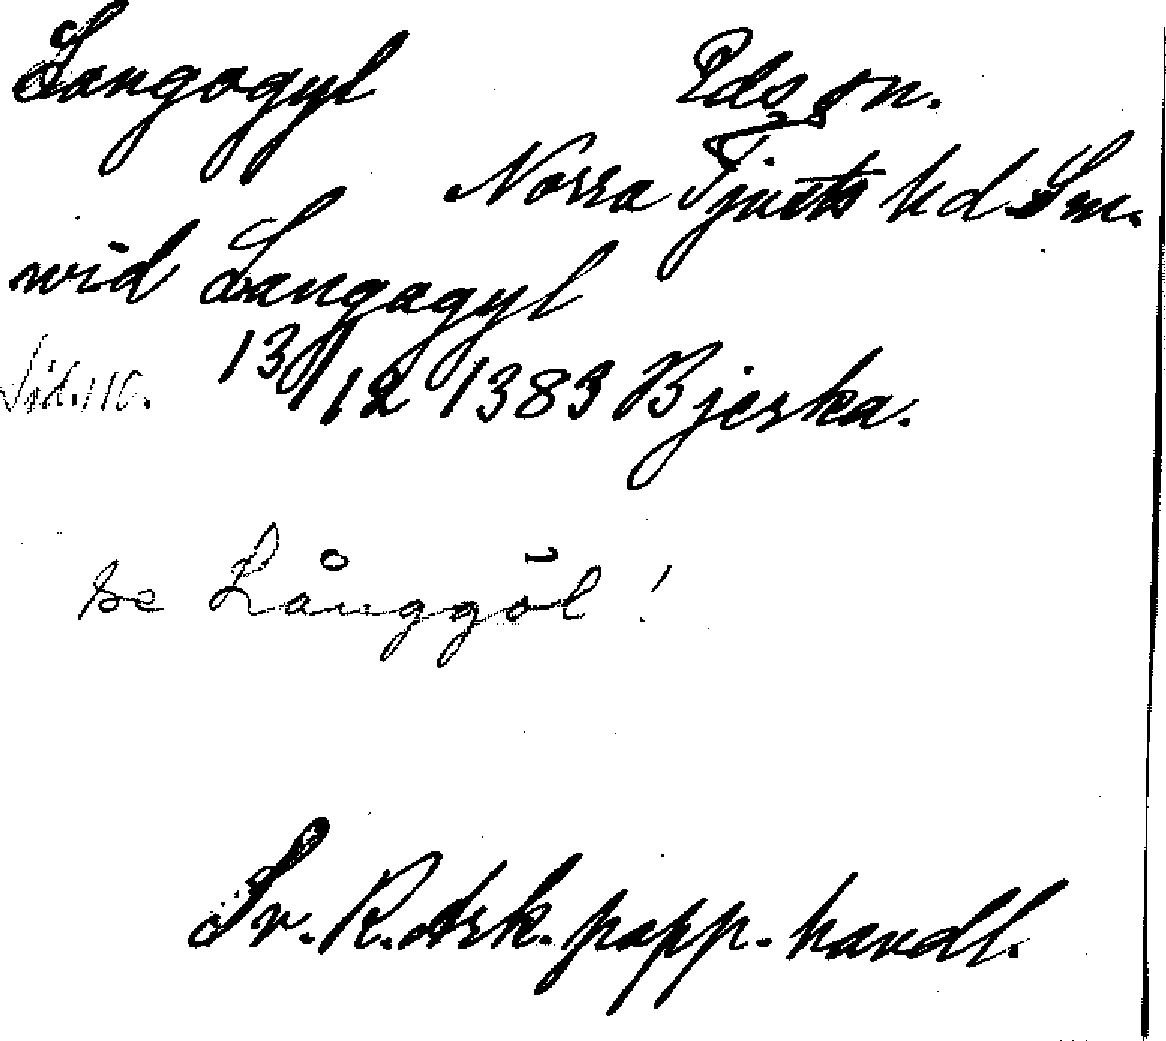 Langagyl Eds sn.
Norra Tjusts hd Sm.
wid Langagyl
13/12 1383 Bjerka.
se Långgöl!
Sv. R. Ark. papp. handl.